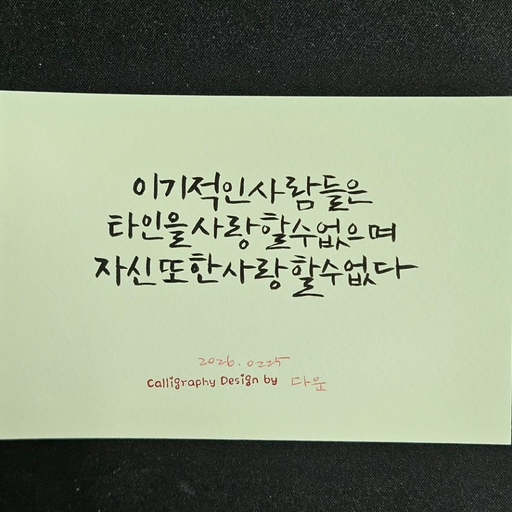 이기적인사람들은
타인을사랑할수없으며
자신또한사랑할수없다
2026.0225
Calligraphy Design by 다운